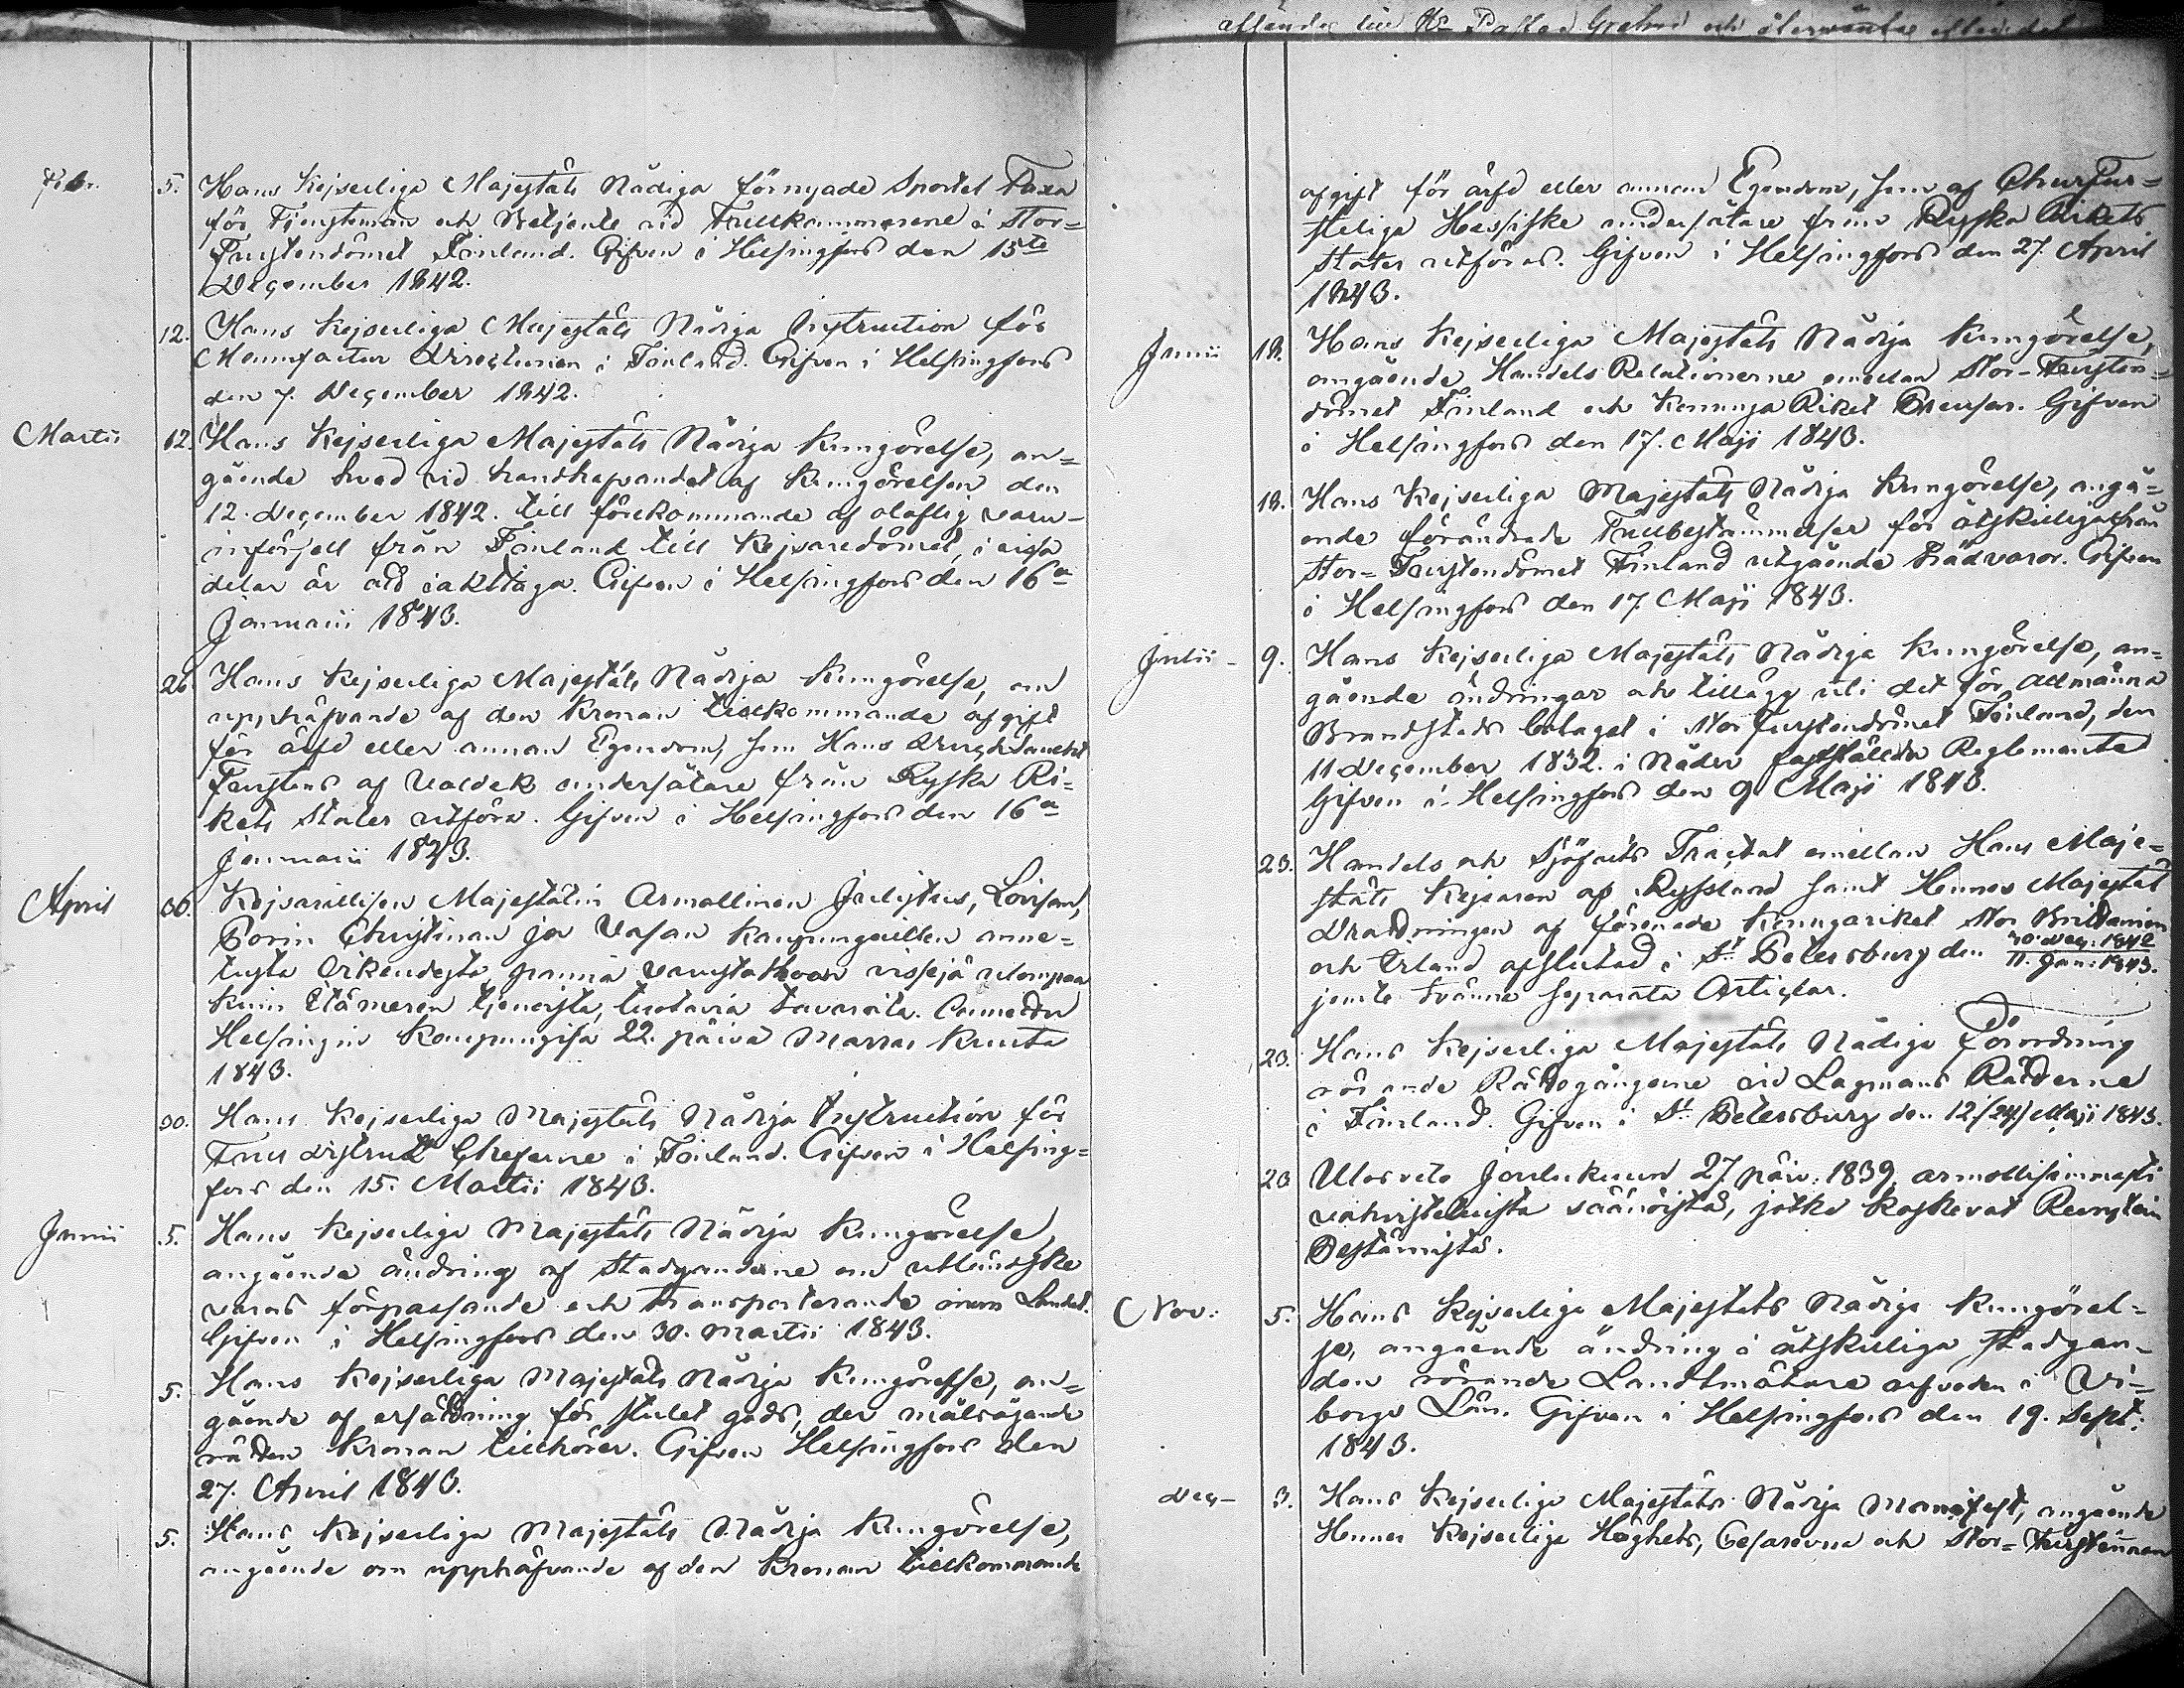 Febr. 5. Hans Kejserliga Majestäts Nådiga förnyade Sportel Taxa
för Tjenstemän och Betjente vid Tullkamrarene i Stor=
Furstendömet Finland. Gifven i Helsingfors den 15te
December 1842.
12. Hans Kejserliga Majestäts Nådiga Instruction för
Manufactur Directionen i Finland. Gifven i Helsingfors
den 7. December 1842.
Martii 12. Hans Kejserliga Majestäts Nådiga Kungörelse, an=
gående hvad vid handhafvandet af Kungörelsen den
12. December 1842. till förekommande af olaflig varu-
införsell från Finland till Kejsaredömet, i vissa
delar är att iakttaga. Gifven i Helsingfors den 16a
Januarii 1843.
26. Hans Kejserliga Majestäts Nådiga Kungörelse, om
upphäfvande af den Kronan tillkommande afgift
för ärfd eller annan Egendom, som Hans
Furstens af Valdek undersåtare från Ryska Ri=
kets Stater utföra. Gifven i Helsingfors den 16a
Januarii 1843.
April 30. Kejsarillisen Majestätin Armollinen Julistus, Lovisan,
Porin Christinan ja Vasan kaupungeillen anne=
tusta Oikeudesta, panna varustathoon vissejä ulompaa
kuin Itämeren tienoista, tuotavia tavaroita. Annettu
Helsingin Kaupungisa 22. päivä Marras kuuta
1843.
30. Hans Kejserliga Majestäts Nådiga Instruction för
Tull Distrikt Cheferne i Finland. Gifven i Helsing=
fors den 15. Martii 1843.
Junii 5. Hans Kejserliga Majestäts Nådiga Kungörelse,
angående ändring af Stadganderne om utländske
varors förpassande och transporterande inom Landet.
Gifven i Helsingfors den 30. Martii 1843.
5. Hans Kejserliga Majestäts Nådiga Kungörelse, an=
gående af ersättning för stulet gods, der målsägande
rätten Kronan tillhörer. Gifven Helsingfors den
27. April 1843.
5. Hans Kejserliga Majestäts Nådiga Kungörelse,
angående om upphäfvande af den Kronan tillkommande
och återväntas
afgift för ärfd eller annan Egendom, som af Churfur=
steliga Hessiske undersåtare från Ryska Rikets
Stater utföras. Gifven i Helsingfors den 27. April
1843.
Junii 18. Hans Kejserliga Majestäts Nådiga Kungörelse,
angående Handels Relationerne emellan Stor-Fursten=
dömet Finland och Konunga Riket Preussen. Gifven
i Helsingfors den 17. Maji 1843.
18. Hans Kejserliga Majestäts Nådiga Kungörelse, angå=
ende förändrade Tullbestämmelser för åtskilliga från
Stor=Furstendömet Finland utgående Trädvaror. Gifven
i Helsingfors den 17. Maji 1843.
Julii - 9. Hans Kejserliga Majestäts Nådiga Kungörelse, an=
gående ändringar och tillägg uti det för Allmänna
Brandstods bolaget i Stor Furstendömet Finland, den
11 December 1832. i Nåder fastställda Reglemente
Gifven i Helsingfors den 9 Maji 1843.
23. Handels och Sjöfarts Tractat emellan Hans Maje=
stäts Kejsaren af Ryssland samt Hennes Majestät
Drottningen af förenade Konungariket Stor Brittanien
och Irland afslutad i St. Petersburg den 30. Dec: 1842 / 11. Jan: 1843.
jemte tvänne separata Articlar.
23. Hans Kejserliga Majestäts Nådiga Förordning
rörande Rättegångarne vid Lagmans Rätterne
i Finland. Gifven i St. Petersburg den 12/24/ Maji 1843.
23 Ulosveto Joulukuun 27 päiv: 1839, armollisimmasti
vahvistetuista säännöistä, jotka koskevat
Nov: 5. Hans Kejserliga Majestäts Nådiga Kungörel=
se, angående ändring i åtskilliga stadgan-
den rörande Landtmätare arfvoden i Vi-
borgs Län. Gifven i Helsingfors den 19. Sept:
1843.
Dec- 3. Hans Kejserliga Majestäts Nådiga Manifest, angående
Hennes Kejserliga Höghets, Cesarevna och Stor=Furstinnan